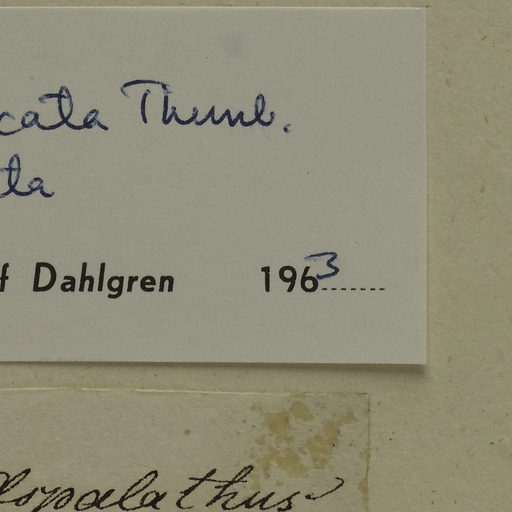 cata Thunb.
ta
f Dahlgren 1963.......
Aspalathus